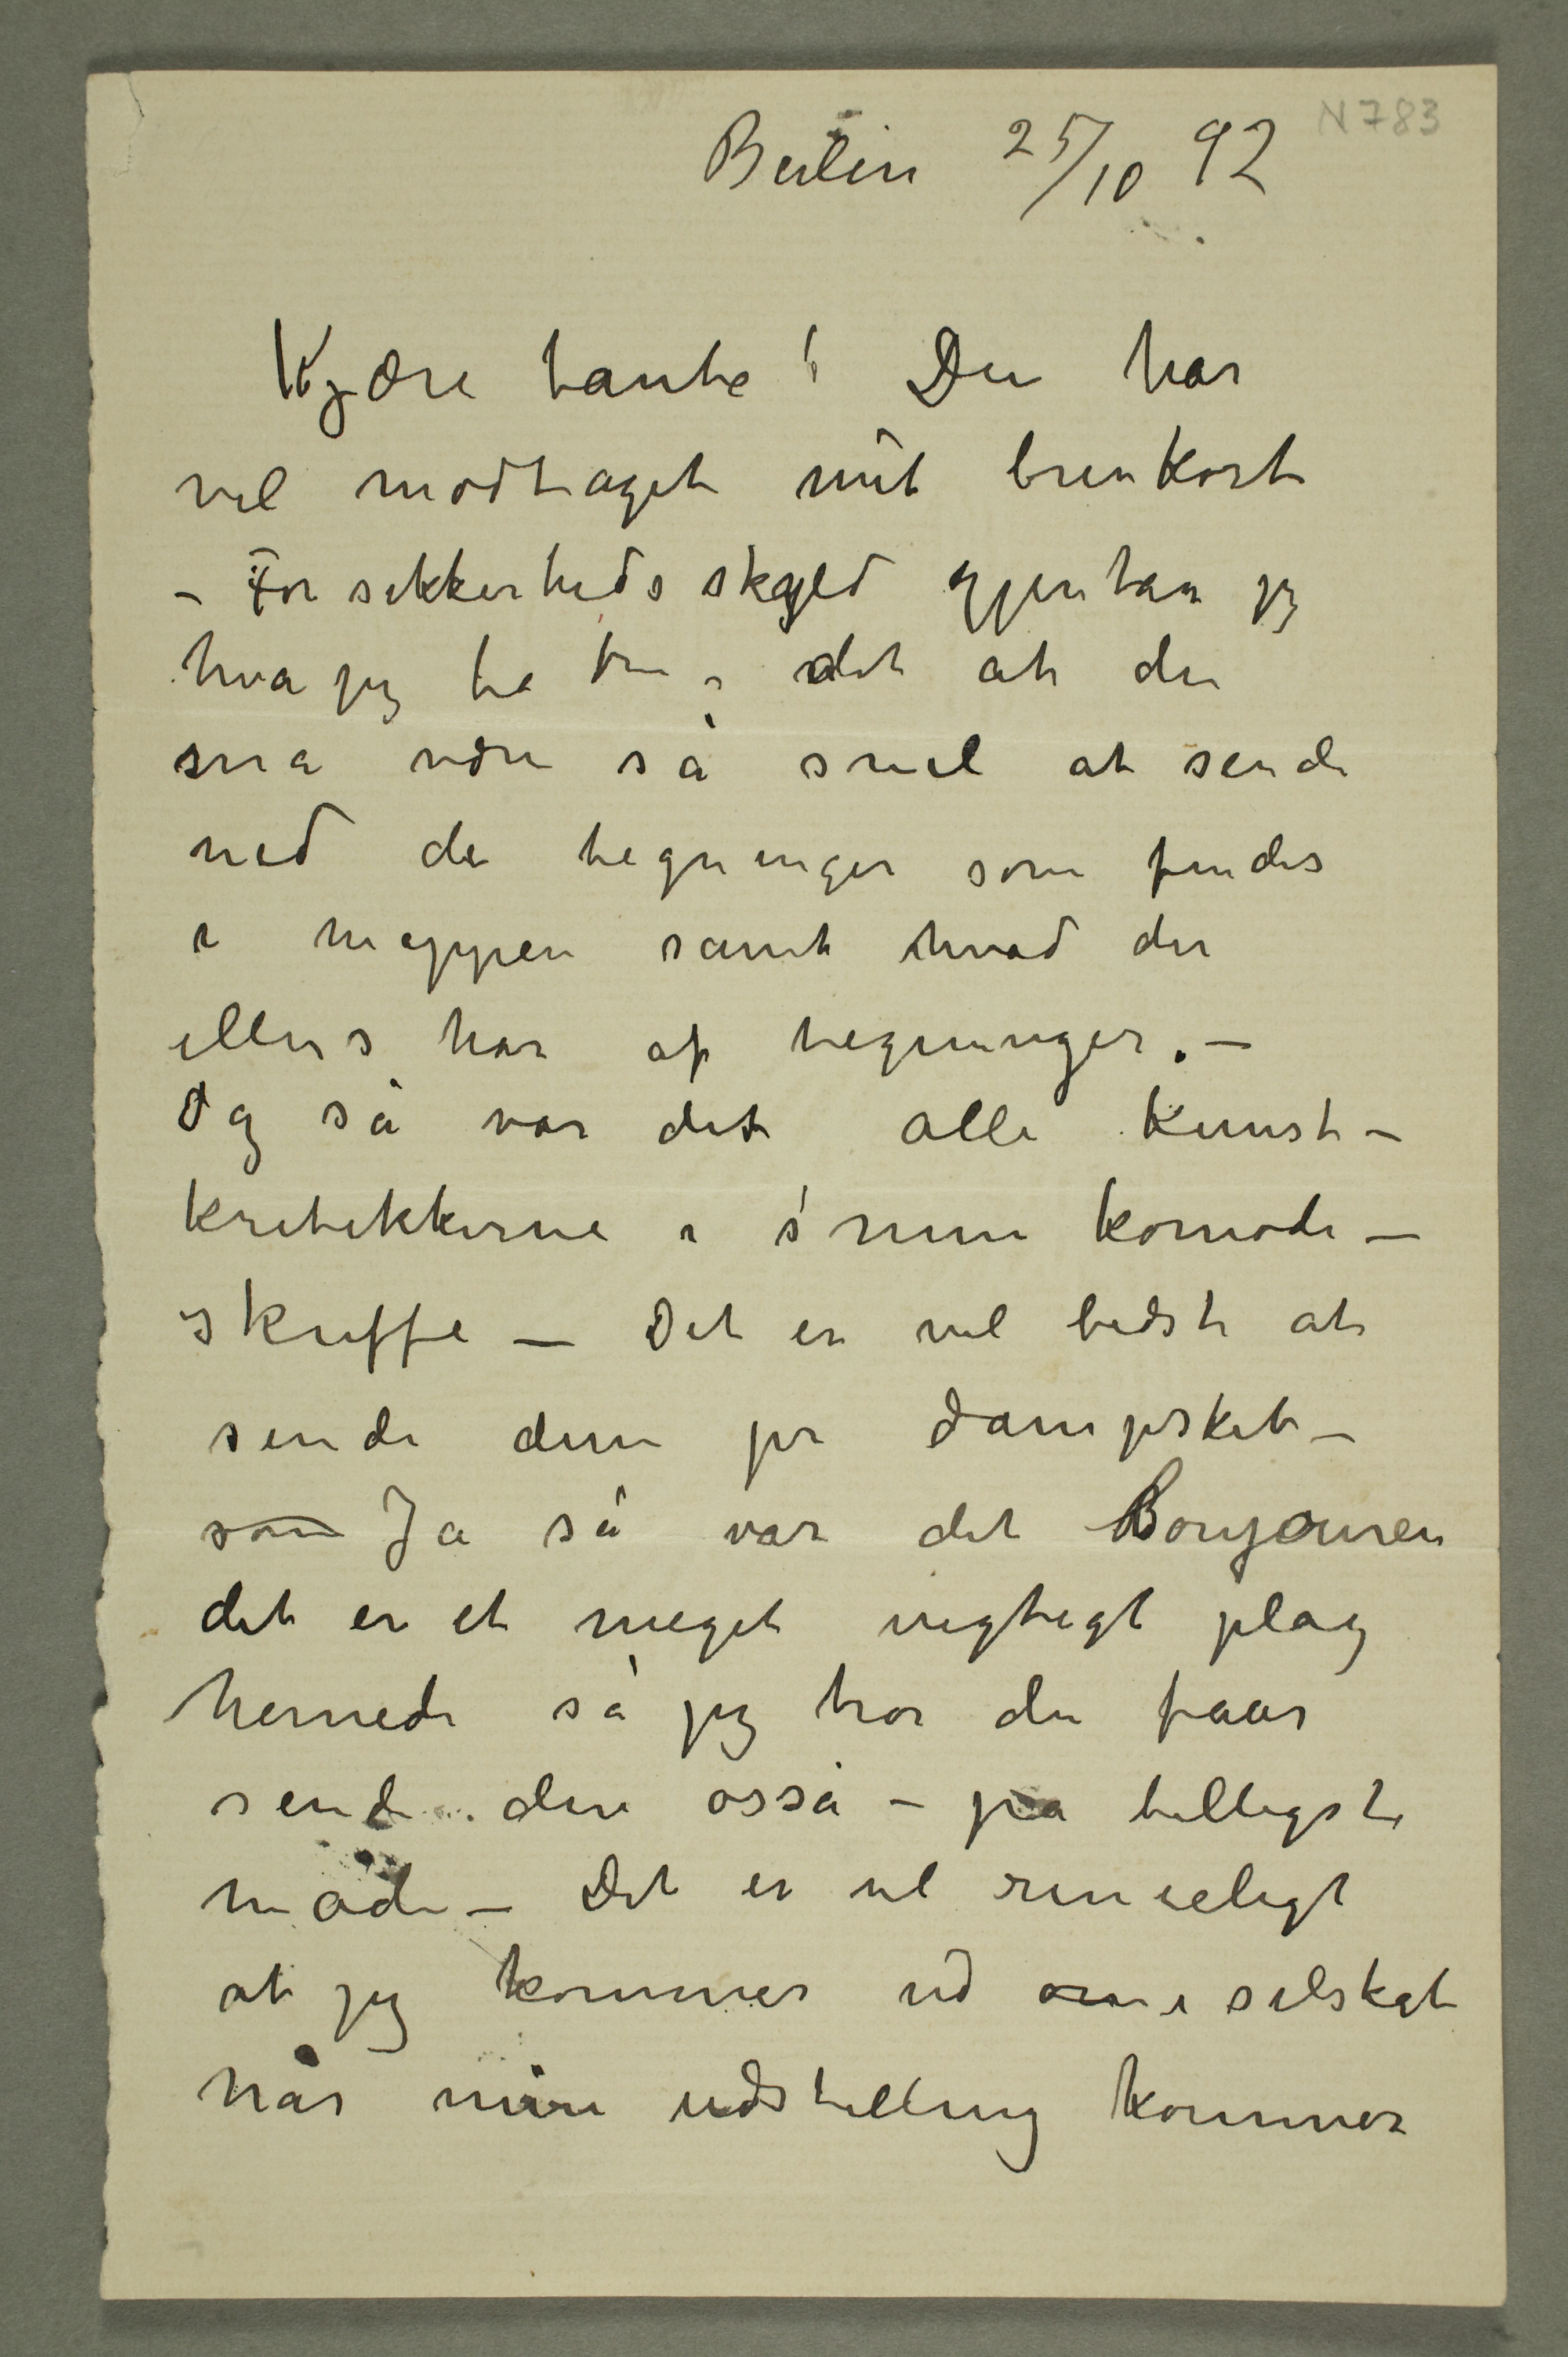 N 783
Berlin 25/10 92
Kjære tante! Du har
vel modtaget mit brevkort
– For sikkerheds skyld gjentar jeg
hva jeg ba om, det at du
må være så snil at sende
ned de tegninger som findes
i mappen samt hvad du
ellers har af tegninger. –
Og så var det alle kunst-
kritikkerne i min komode-
skuffe – Det er vel bedst at
sende dem pr dampskib –
som Ja så var det Bonjouren
det er et meget vigtigt plag
hernede så jeg tror du faar
sende den osså – på billigste
måde – Det er vel rimeligt
at jeg kommer ud i selskab
når min udstilling kommer